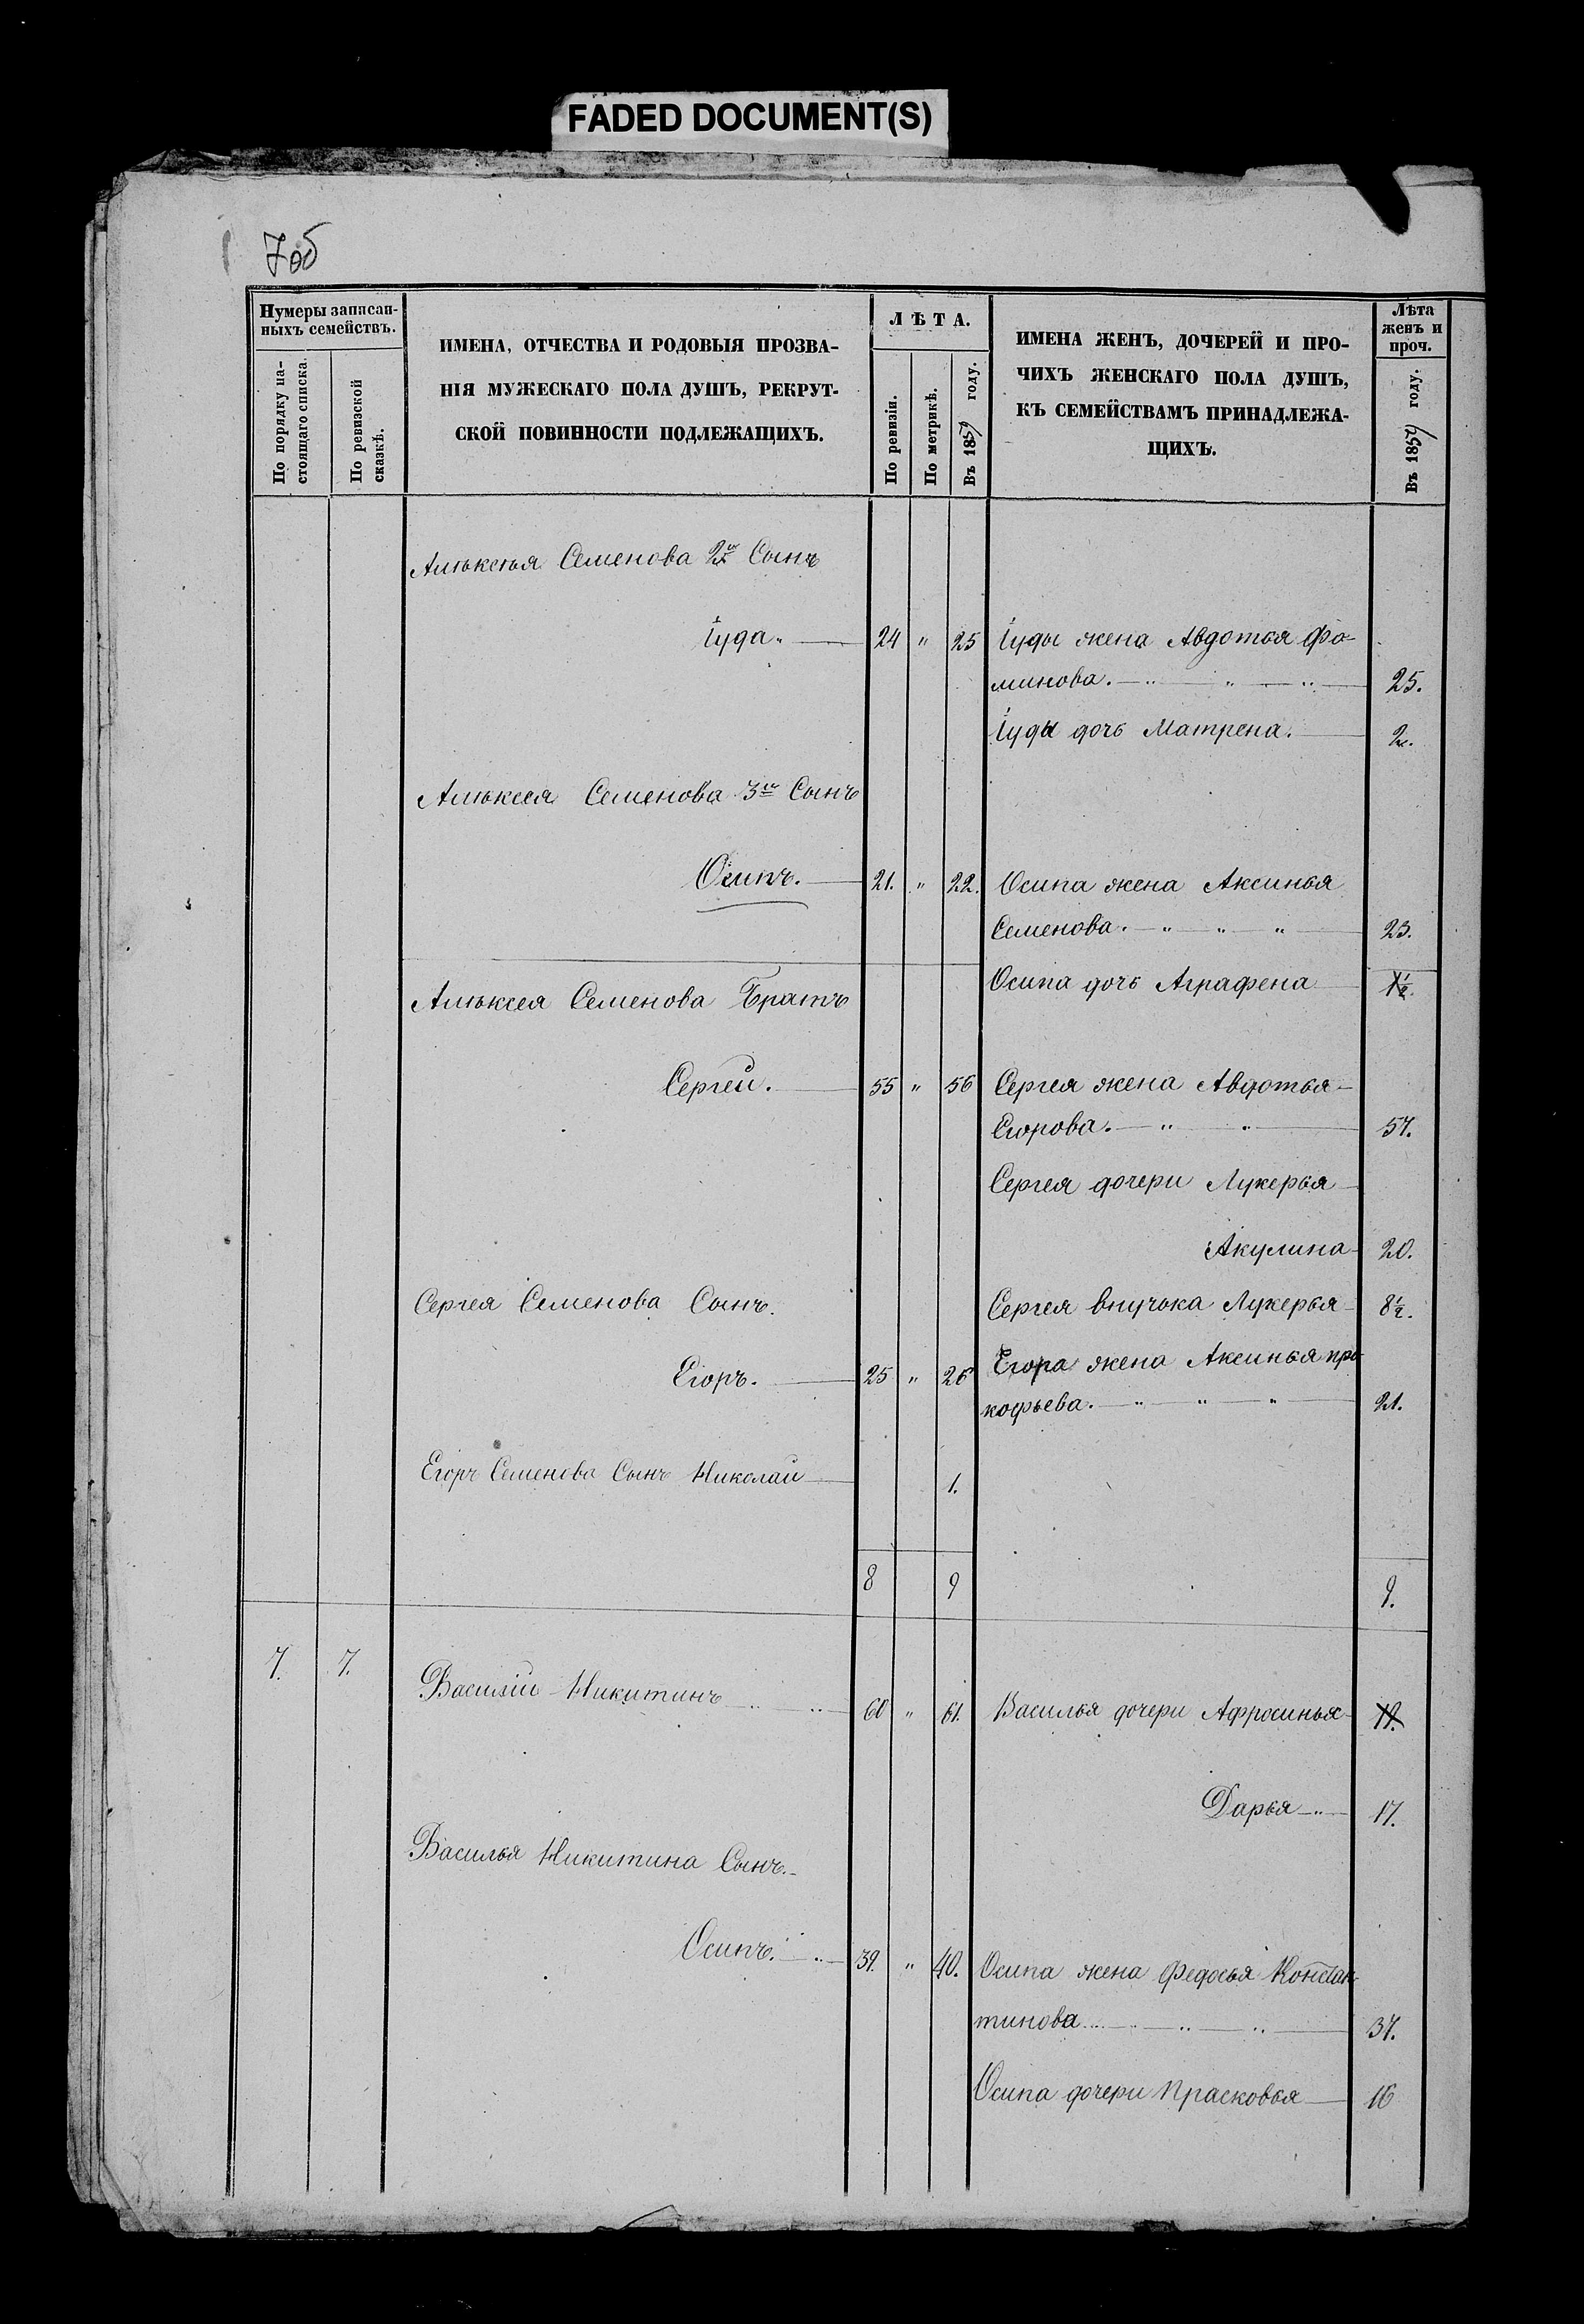 FADED DOCUMENT(S)
7об
Нумеры записан-
ныхъ семействъ.
По порядку на-
стоящаго списка.
По ревизской
сказкѣ.
ИМЕНА, ОТЧЕСТВА И РОДОВЫЯ ПРОЗВА-
НІЯ МУЖЕСКАГО ПОЛА ДУШЪ, РЕКРУТ-
СКОЙ ПОВИННОСТИ ПОДЛЕЖАЩИХЪ.
ЛѢТА.
По ревизіи.
По метрикѣ.
Въ 1859 году.
ИМЕНА ЖЕНЪ, ДОЧЕРЕЙ И ПРО-
ЧИХЪ ЖЕНСКАГО ПОЛА ДУШЪ,
КЪ СЕМЕЙСТВАМЪ ПРИНАДЛЕЖА-
ЩИХЪ.
Лѣта
женъ и
проч.
Въ 1859 году.
Алѣксѣя Семенова 2й Сынъ
Іуда. 24 " 25 Іуды жена Авдотья Фо-
минова. 25.
Іуды дочь Матрена. 2.
Алѣксея Семенова 3й Сынъ
Осипъ. 21. " 22. Осипа жена Аксинья
Семенова. 23.
Осипа дочь Аграфена 1½.
Алѣксея Семенова Братъ
Сергей. 55 " 56 Сергея жена Авдотья
Егорова. 57.
Сергея дочери Лукерья
Акулина 20.
Сергея Семенова Сынъ. Сергея внучька Лукерья 8½.
Егоръ. 25 " 26 Егора жена Аксинья про
кофьева. 21.
Егоръ Семенова Сынъ Николай 1.
8 9 9.
7. 7. Василій Никитинъ 60 " 61. Василья дочери Афросинья 19.
Дарья 17.
Василья Никитина Сынъ.
Осипъ. 39. " 40. Осипа жена Федосья Констан
тинова 37.
Осипа дочери Прасковья 16